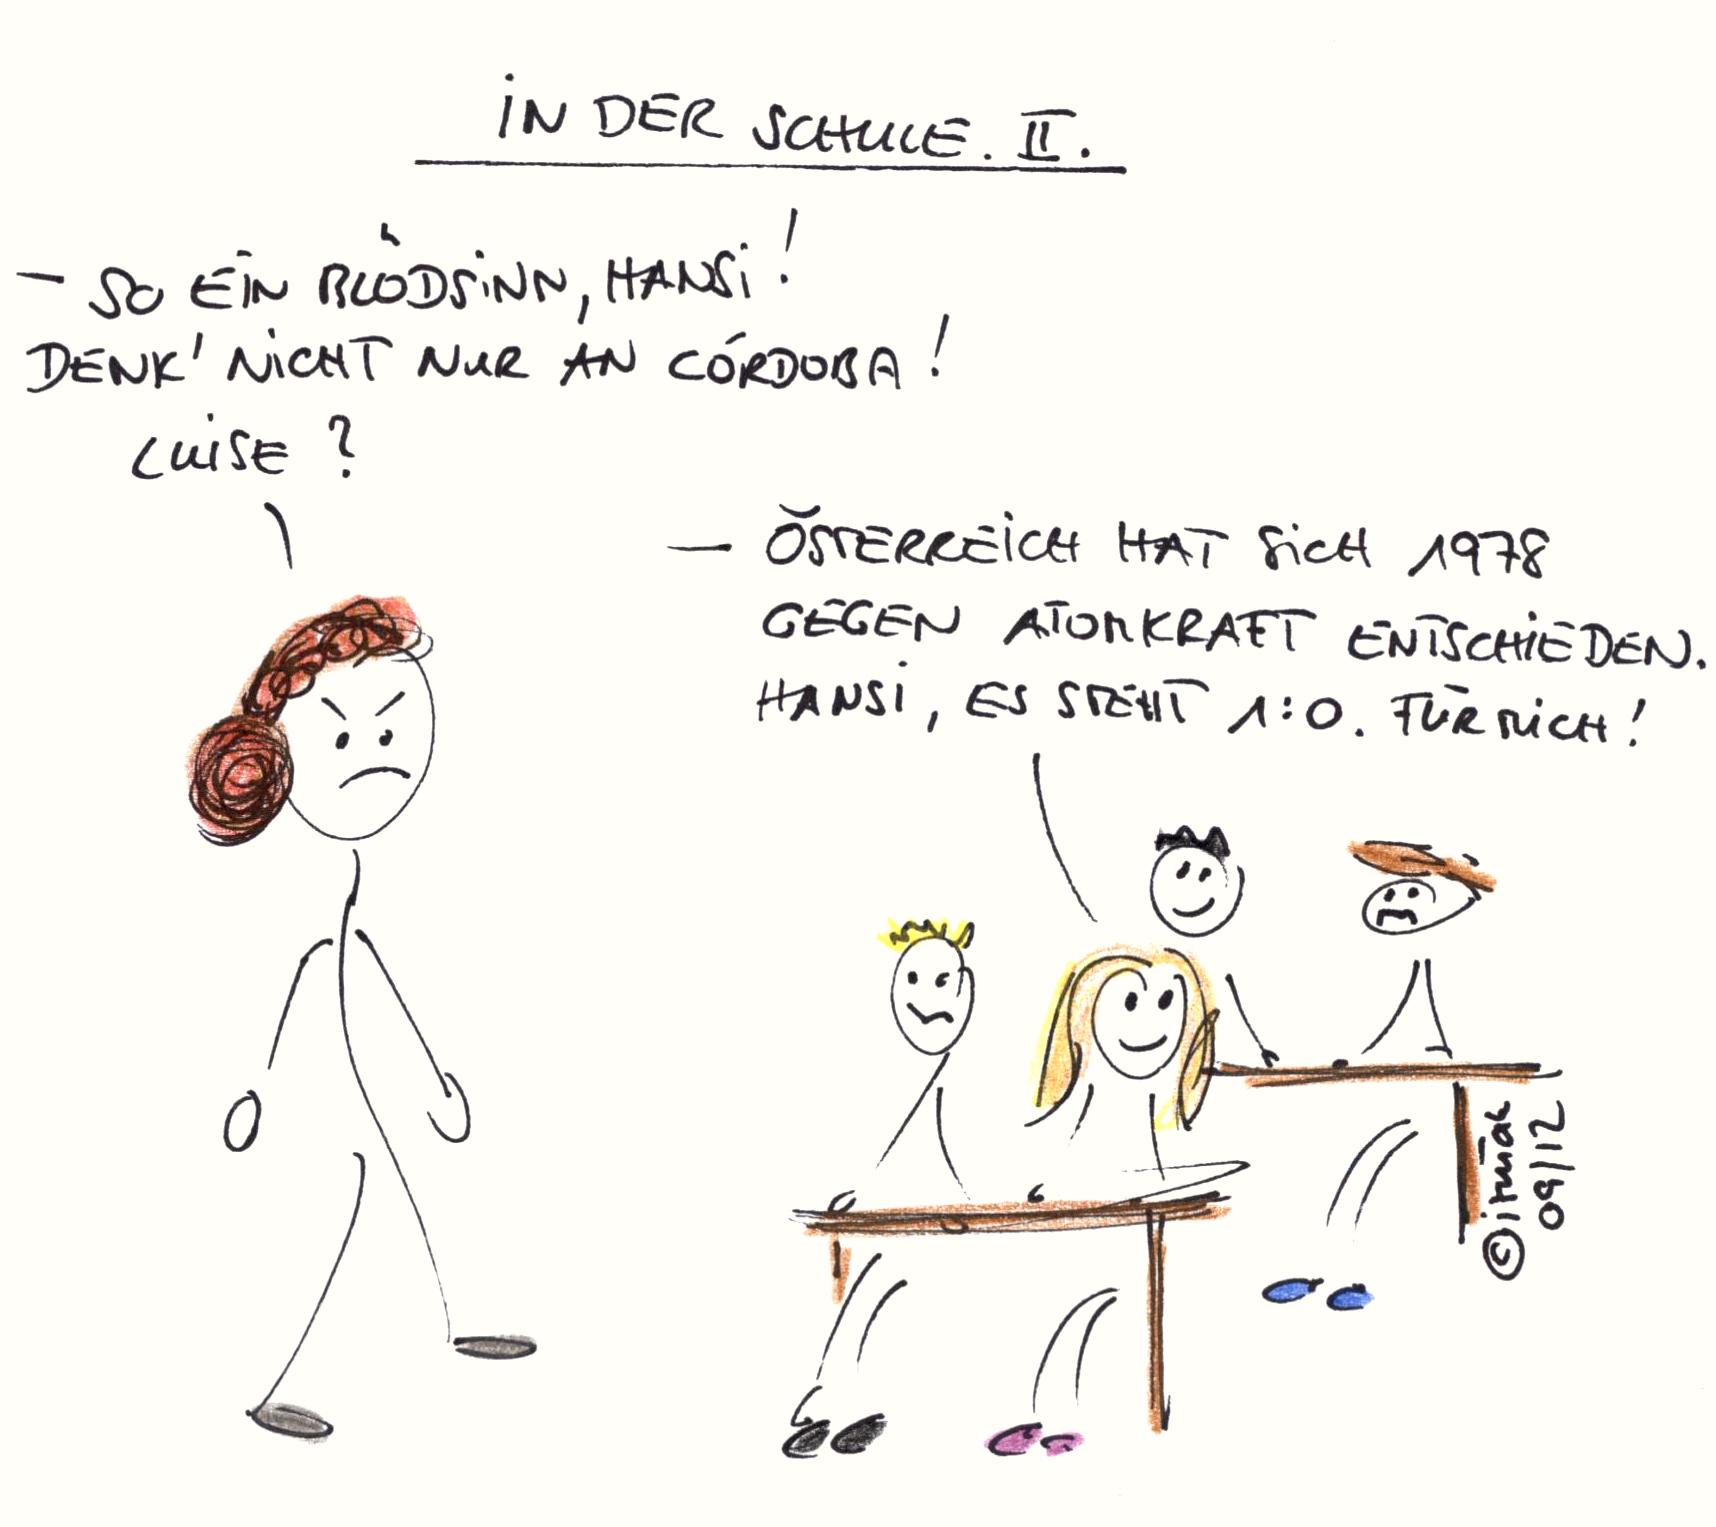 IN DER SCHULE. II.
– SO EIN BLÖDSINN, HANSI!
DENK' NICHT NUR AN CÓRDOBA!
LUISE?
– ÖSTERREICH HAT SICH 1978
GEGEN ATOMKRAFT ENTSCHIEDEN.
HANSI, ES STEHT 1:0. FÜR MICH!
© itmak
09/12